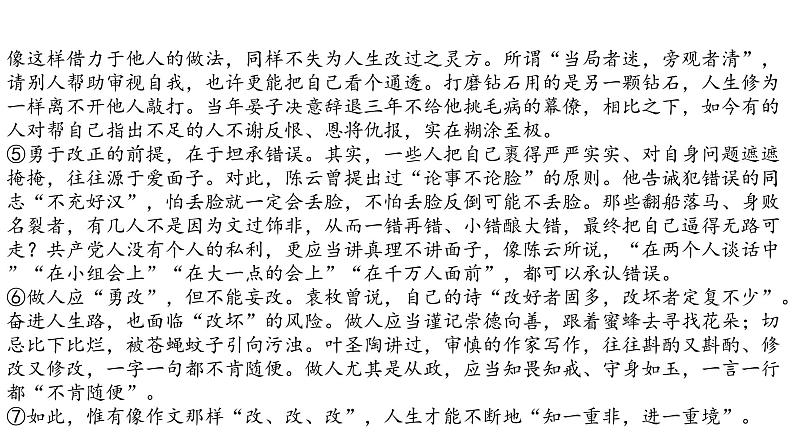 像这样借力于他人的做法，同样不失为人生改过之灵方。所谓“当局者迷，旁观者清”，
请别人帮助审视自我，也许更能把自己看个通透。打磨钻石用的是另一颗钻石，人生修为
一样离不开他人敲打。当年晏子决意辞退三年不给他挑毛病的幕僚，相比之下，如今有的
人对帮自己指出不足的人不谢反恨、恩将仇报，实在糊涂至极。
⑤勇于改正的前提，在于坦承错误。其实，一些人把自己裹得严严实实、对自身问题遮遮
掩掩，往往源于爱面子。对此，陈云曾提出过“论事不论脸”的原则。他告诫犯错误的同
志“不充好汉”，怕丢脸就一定会丢脸，不怕丢脸反倒可能不丢脸。那些翻船落马、身败
名裂者，有几人不是因为文过饰非，从而一错再错、小错酿大错，最终把自己逼得无路可
走？共产党人没有个人的私利，更应当讲真理不讲面子，像陈云所说，“在两个人谈话中
”“在小组会上”“在大一点的会上”“在千万人面前”，都可以承认错误。
⑥做人应“勇改”，但不能妄改。袁枚曾说，自己的诗“改好者固多，改坏者定复不少”。
奋进人生路，也面临“改坏”的风险。做人应当谨记崇德向善，跟着蜜蜂去寻找花朵；切
忌比下比烂，被苍蝇蚊子引向污浊。叶圣陶讲过，审慎的作家写作，往往斟酌又斟酌、修
改又修改，一字一句都不肯随便。做人尤其是从政，应当知畏知戒、守身如玉，一言一行
都“不肯随便”。
⑦如此，惟有像作文那样“改、改、改”，人生才能不断地“知一重非，进一重境”。